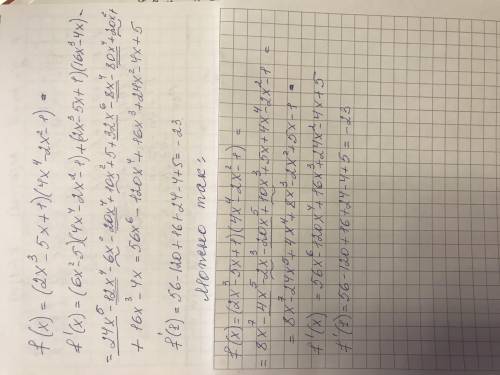 f(x) = (2x³ - 5x + 1)(4x⁴ - 2x² - 1) =
f'(x) = (6x² - 5)(4x⁴ - 2x² - 1) + (2x³ - 5x + 1)(16x³ - 4x) =
= 24x⁶ - 12x⁴ - 6x² - 20x⁴ + 10x² + 5 + 32x⁶ - 8x⁴ - 80x⁴ + 20x² +
+ 16x³ - 4x = 56x⁶ - 120x⁴ + 16x³ + 24x² - 4x + 5
f'(1) = 56 - 120 + 16 + 24 - 4 + 5 = -23
Можно так:
f(x) = (2x³ - 5x + 1)(4x⁴ - 2x² - 1) =
= 8x⁷ - 4x⁵ - 2x³ - 20x⁵ + 10x³ + 5x + 4x⁴ - 2x² - 1 =
= 8x⁷ - 24x⁵ + 4x⁴ + 8x³ - 2x² + 5x - 1 =
f'(x) = 56x⁶ - 120x⁴ + 16x³ + 24x² - 4x + 5
f'(1) = 56 - 120 + 16 + 24 - 4 + 5 = -23